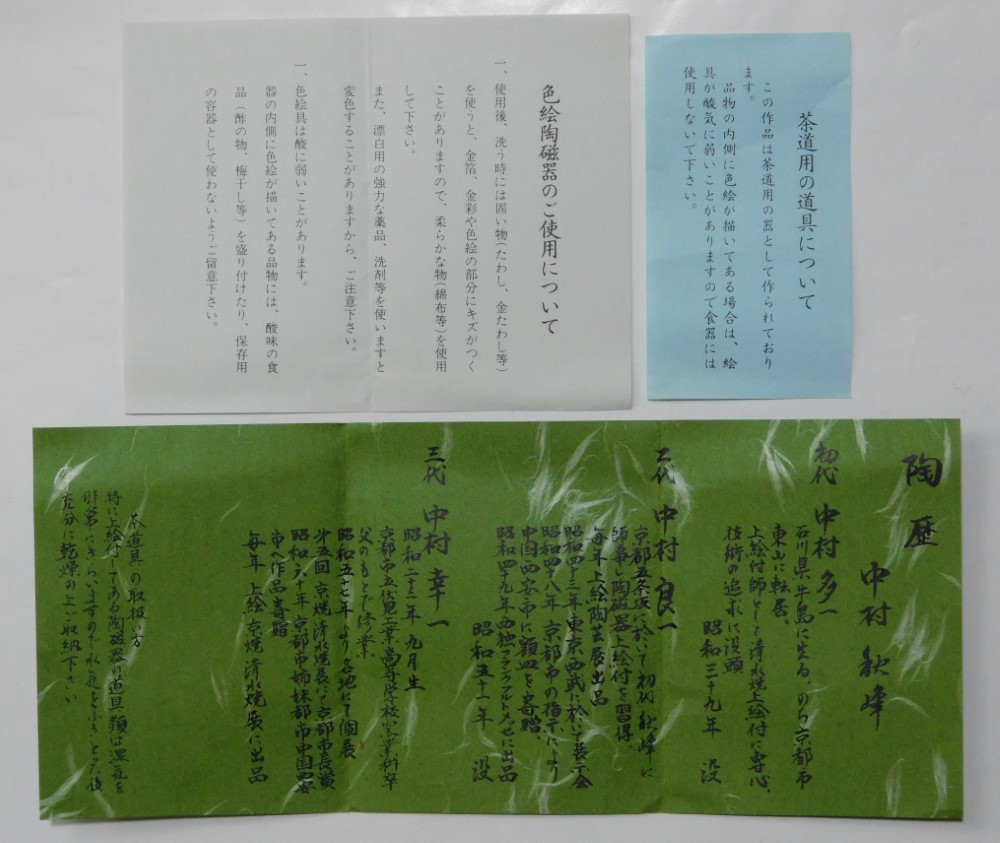 茶道用の道具について
この作品は茶道用の器として作られており
ます。
品物の内側に色絵が描いてある場合は、絵
具が酸気に弱いことがありますので食器には
使用しないで下さい。
色絵陶磁器のご使用について
一、使用後、洗う時には固い物(たわし、金たわし等)
を使うと、金箔、金彩や色絵の部分にキズがつく
ことがありますので、柔らかな物(綿布等)を使用
して下さい。
また、漂白用の強力な薬品、洗剤等を使いますと
変色することがありますから、ご注意下さい。
一、色絵具は酸に弱いことがあります。
器の内側に色絵が描いてある品物には、酸味の食
品(酢の物、梅干し等)を盛り付けたり、保存用
の容器として使わないようご留意下さい。
陶歴
中村秋峰
初代 中村多一
石川県牛島に生る。のち京都市
東山に転居。
上絵付師として清水焼上絵付に専心、
技術の追求に没頭
昭和三十九年 没
二代 中村良一
京都五条坂に於いて初代秋峰に
師事し陶磁器上絵付を習得
毎年上絵陶芸展出品
昭和四十三年東京西武に於いて展示会
昭和四十八年京都市の指示により
中国西安市に額皿を寄贈
昭和四十九年西独フランクフルトメッセに出品
昭和五十一年 没
三代 中村幸一
昭和二十三年九月生
京都市立伏見工業高等学校窯業科卒
父のもとで修業
昭和五七年より各地にて個展
第五回京焼清水焼展にて京都市長賞
昭和六十年京都市姉妹都市中国西安
市へ作品寄贈
毎年上絵、京焼清水焼展に出品
茶道具の取扱い方
特に上絵付してある陶磁器の道具類は湿気を
非常にきらいますので水気をふきとった後
充分に乾燥の上ご収納下さい